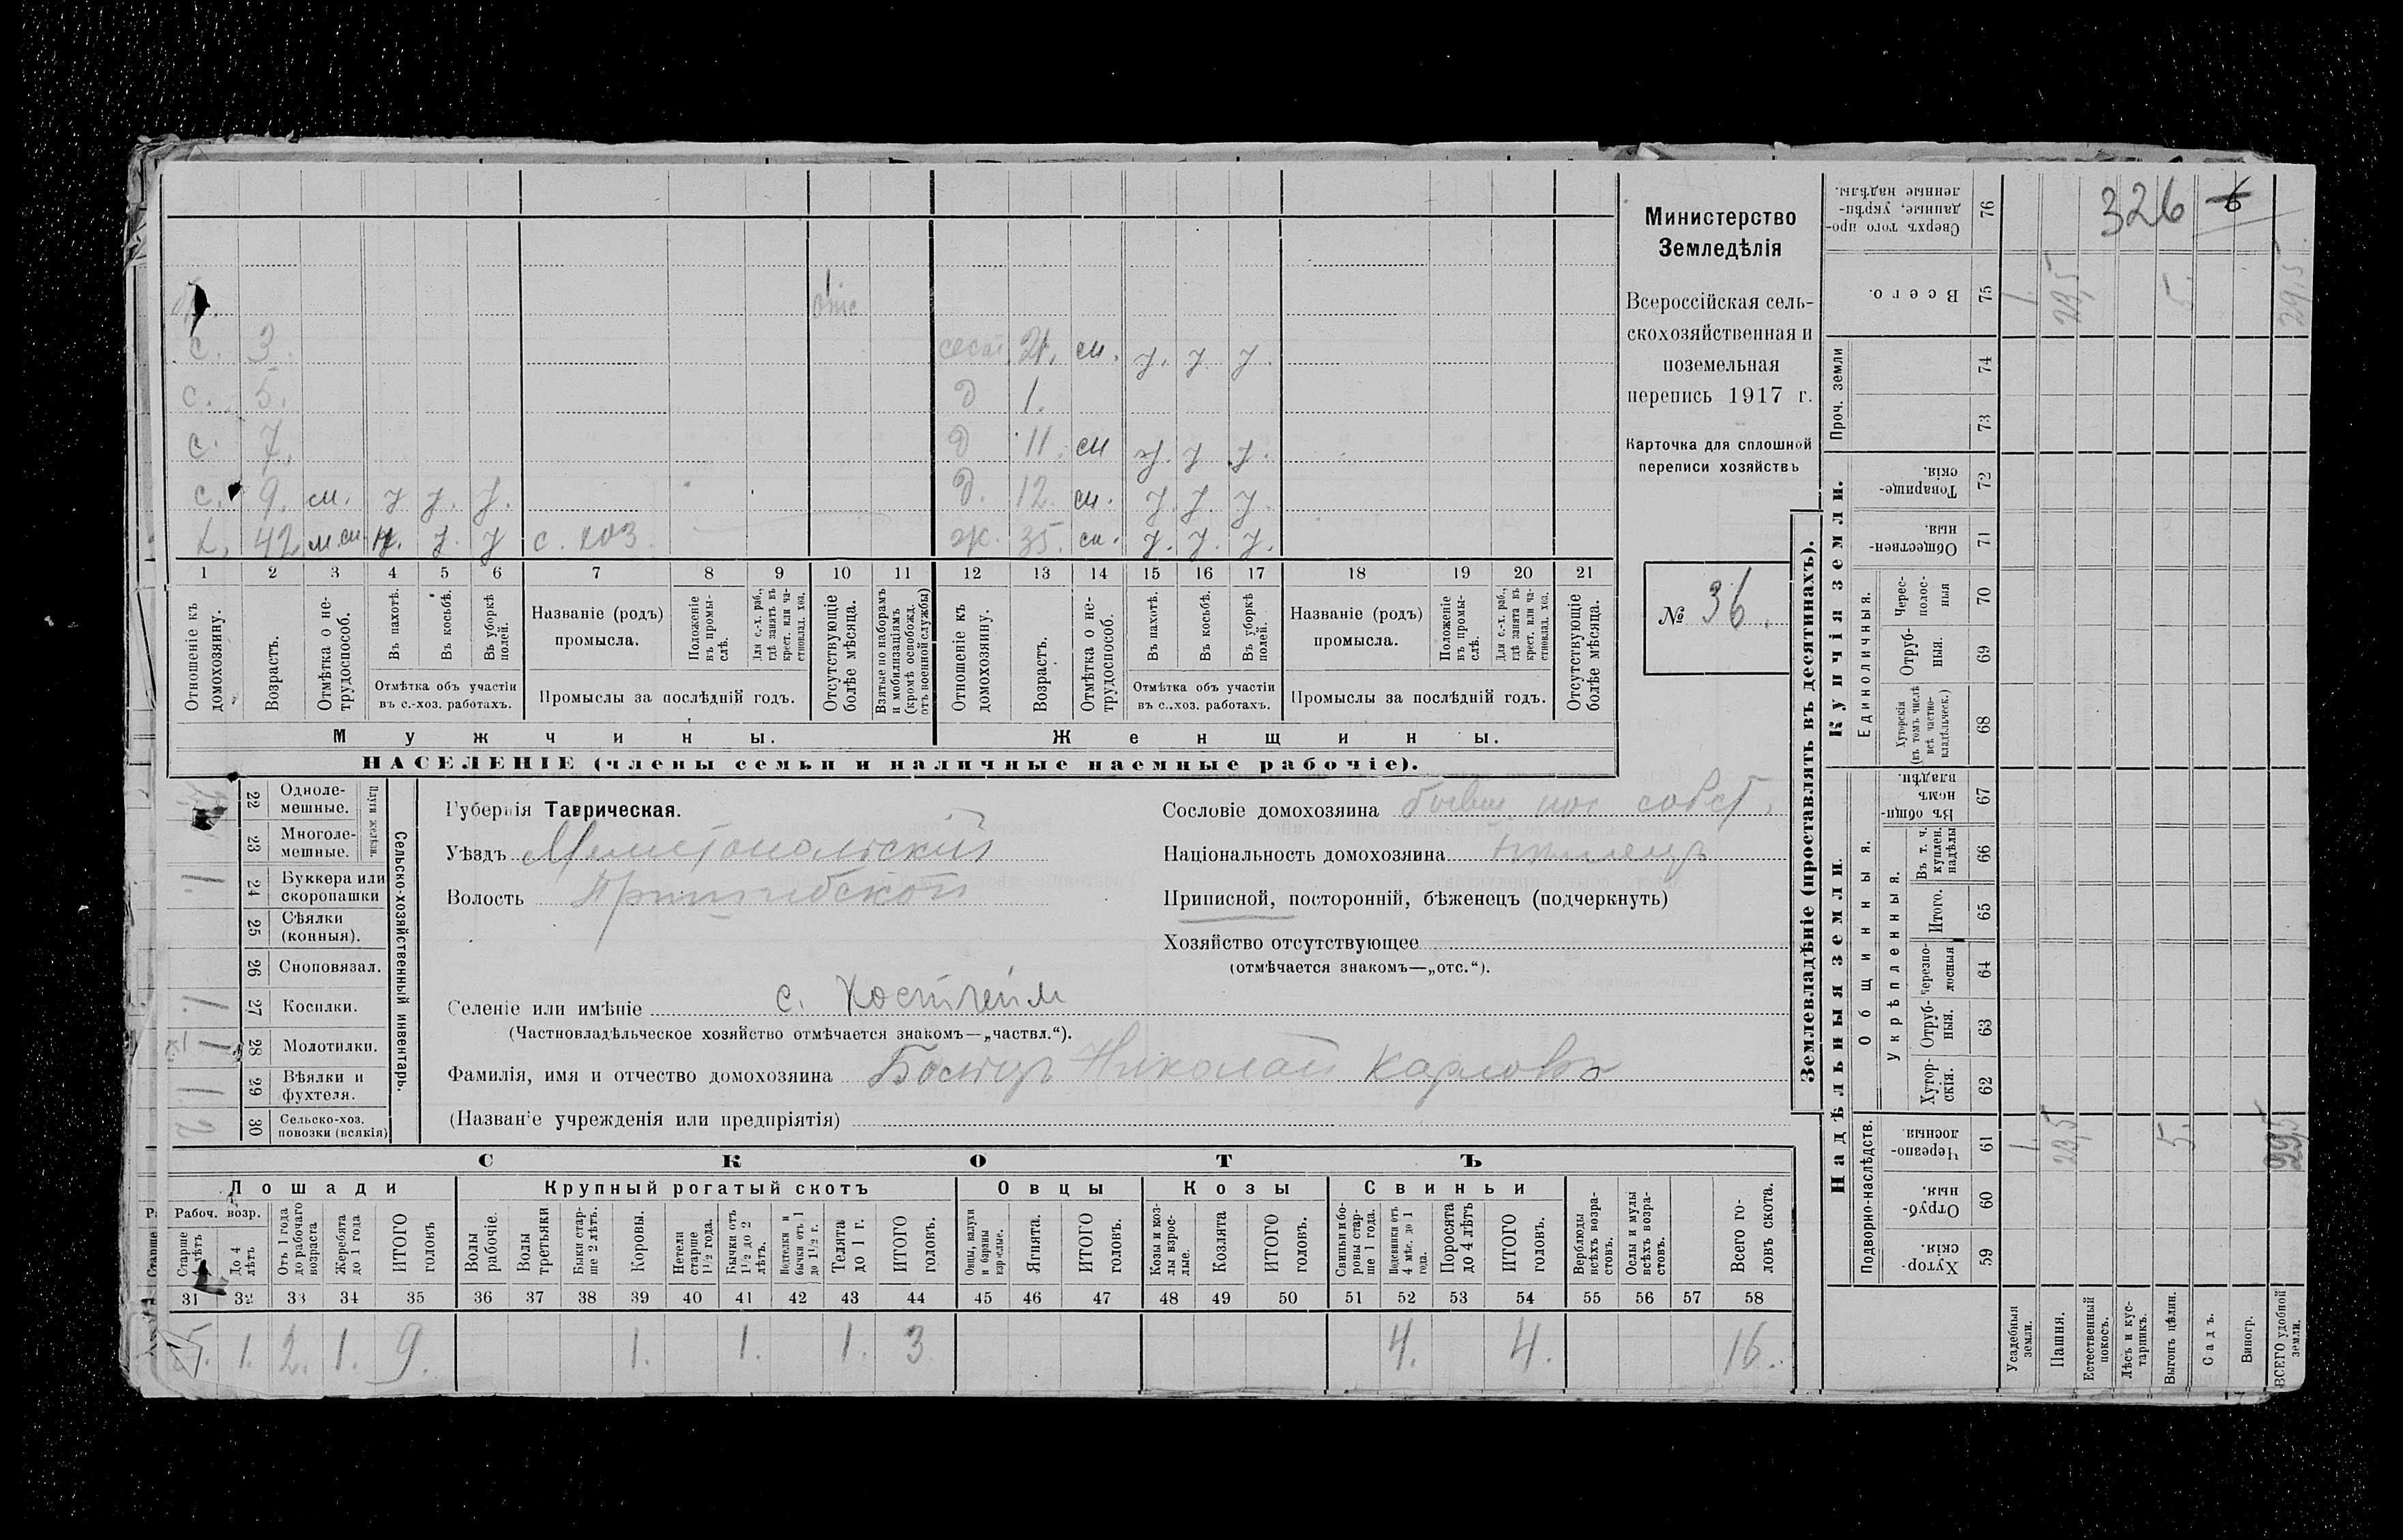 326 6
Министерство
Земледѣлія
Всероссійская сель-
скохозяйственная и
поземельная
перепись 1917 г.
Карточка для сплошной
переписи хозяйствъ
№ 36.
с. 3.
сест. 21. см. у. у. у.
с. 5.
д 1.
с. 7.
д 11. см у. у. у.
с. 9. см. у у. у.
д. 12. см. у. у. у.
х. 42 у. у с. хоз.
ж. 35. см. у. у. у.
1 2 3 4 5 6 7 8 9 10 11 12 13 14 15 16 17 18 19 20 21
Отношеніе къ домохозяину.
Возрастъ.
Отмѣтка о не-трудоспособ.
Въ пахотѣ.
Въ косьбѣ.
Въ уборкѣ полей.
Отмѣтка объ участіи
въ с.-хоз. работахъ.
Названіе (родъ)
промысла.
Положеніе въ промы-слѣ.
Для с.-х. раб., гдѣ занятъ въ крест. или ча-стновлад. хоз.
Промыслы за послѣдній годъ.
Отсутствующіе болѣе мѣсяца.
Взятые по наборамъ и мобилизаціямъ (кромѣ освобожд. отъ военной службы)
Отношеніе къ домохозяину.
Возрастъ.
Отмѣтка о не-трудоспособ.
Въ пахотѣ.
Въ косьбѣ.
Въ уборкѣ полей.
Отмѣтка объ участіи
въ с.-хоз. работахъ.
Названіе (родъ)
промысла.
Положеніе въ промы-слѣ.
Для с.-х. раб., гдѣ занята въ крест. или ча-стновлад. хоз.
Промыслы за послѣдній годъ.
Отсутствующіе болѣе мѣсяца.
Мужчины.
Женщины.
НАСЕЛЕНІЕ (члены семьи и наличные наемные рабочіе).
22 Одноле-мешные.
23 Многоле-мешные.
Плуги желѣзн.
24 Буккера или скоропашки 1
25 Сѣялки (конныя).
26 Сноповязал.
27 Косилки. 1
28 Молотилки. 1
29 Вѣялки и фухтеля. 1
30 Сельско-хоз. повозки (всякія) 2
Сельско-хозяйственный инвентарь.
Губернія Таврическая.
Уѣздъ Мелитопольскій
Волость Пришибской
Селеніе или имѣніе с. Костгейм
(Частновладѣльческое хозяйство отмѣчается знакомъ—„частвл.“).
Фамилія, имя и отчество домохозяина Николай Карловъ
(Названіе учрежденія или предпріятія)
Сословіе домохозяина бывш пос собст.
Національность домохозяина нѣмецъ
Приписной, посторонній, бѣженецъ (подчеркнуть)
Хозяйство отсутствующее
(отмѣчается знакомъ—„отс.“).
СКОТЪ
Лошади
Крупный рогатый скотъ
Овцы
Козы
Свиньи
Рабоч. возр.
Старше 4 лѣтъ
До 4 лѣтъ
Отъ 1 года до рабочаго возраста
Жеребята до 1 года
ИТОГО головъ
Волы рабочіе.
Волы третьяки
Быки стар-ше 2 лѣтъ.
Коровы.
Нетели старше 1½ года.
Бычки отъ 1½ до 2 лѣтъ.
Подтелки и бычки отъ 1 до 1½ г.
Телята до 1 г.
ИТОГО головъ.
Овцы, валухи и бараны взрослые.
Ягнята.
ИТОГО головъ.
Козы и коз-лы взрос-лые.
Козлята
ИТОГО головъ.
Свиньи и бо-ровы стар-ше 1 года.
Подсвинки отъ 4 мѣс. до 1 года.
Поросята до 4 лѣтъ
ИТОГО головъ.
Верблюды всѣхъ возра-стовъ.
Ослы и мулы всѣхъ возра-стовъ.
Всего го-ловъ скота.
31 32 33 34 35 36 37 38 39 40 41 42 43 44 45 46 47 48 49 50 51 52 53 54 55 56 57 58
5. 1. 2. 1. 9. 1. 1. 1. 3 4. 4. 16.
Землевладѣніе (проставлять въ десятинахъ).
Надѣльныя земли.
Купчія земли.
Проч. земли
Подворно-наслѣдств.
Общинныя.
Укрѣпленныя.
Единоличныя.
76 Сверхъ того про-данные, укрѣп-ленные надѣлы.
75 Всего. 1. 5. 29,5
74
73
72 Товарище-скія.
71 Обществен-ныя.
70 Черес-полос-ныя
69 Отруб-ныя.
68 Хуторскія (въ томъ числѣ всѣ частно-владѣльческ.)
67 Въ общи-номъ владѣн.
66 Въ т. ч. куплен. надѣлы
65 Итого.
64 Черезпо-лосныя
63 Отруб-ныя.
62 Хутор-скія.
61 Черезпо-лосныя. 1. 5. 29,5
60 Отруб-ныя.
59 Хутор-скія.
Усадебныя земли.
Пашня.
Естественный покосъ.
Лѣсъ и кус-тарникъ.
Выгонъ цѣлин.
Садъ.
Виногр.
ВСЕГО удобной земли.